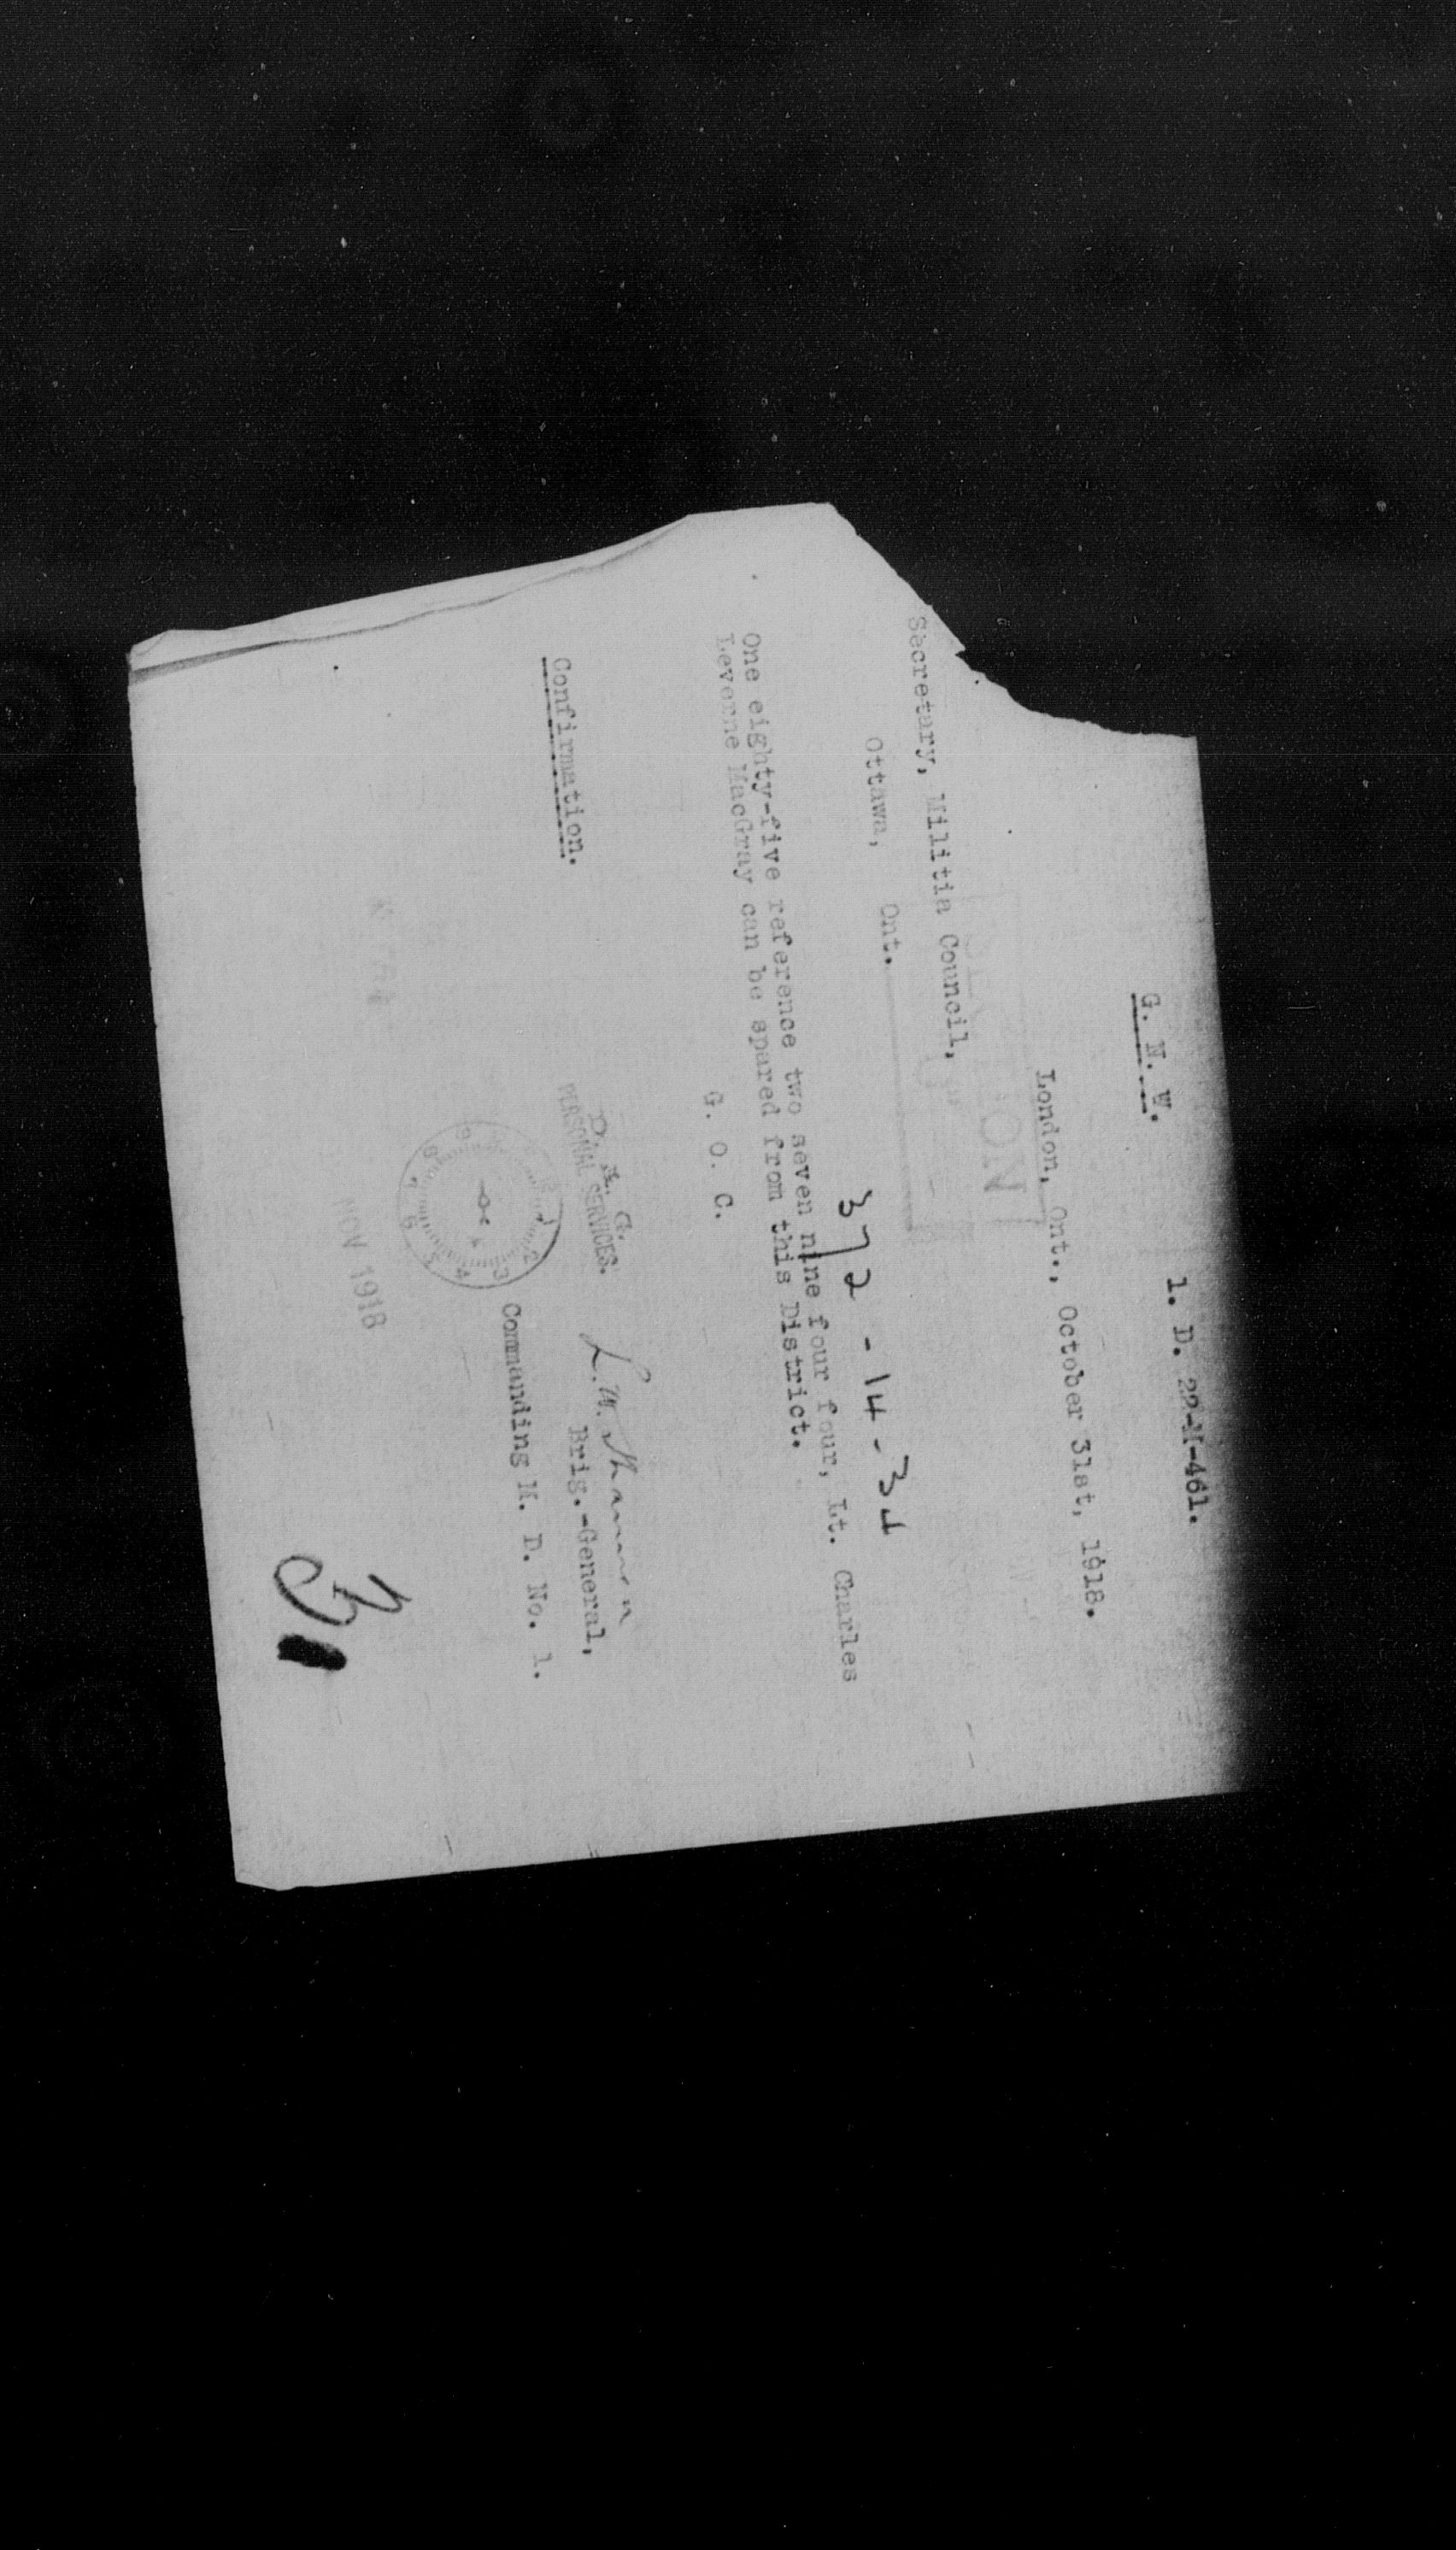 1. D. 22-M-461.
G. N. W.
London, Ont., October 31st, 1918.
Secretary, Militia Council,
Ottawa, Ont.
372-14-34
One eighty-five reference two seven nine four four, Lt. Charles
Leverne MacGray can be spared from this District.
G. O. C.
Confirmation.
D. A. G.
PERSONAL SERVICES.
L. M. Shannon
Brig.-General,
Commanding M. D. No. 1.
NOV 1918